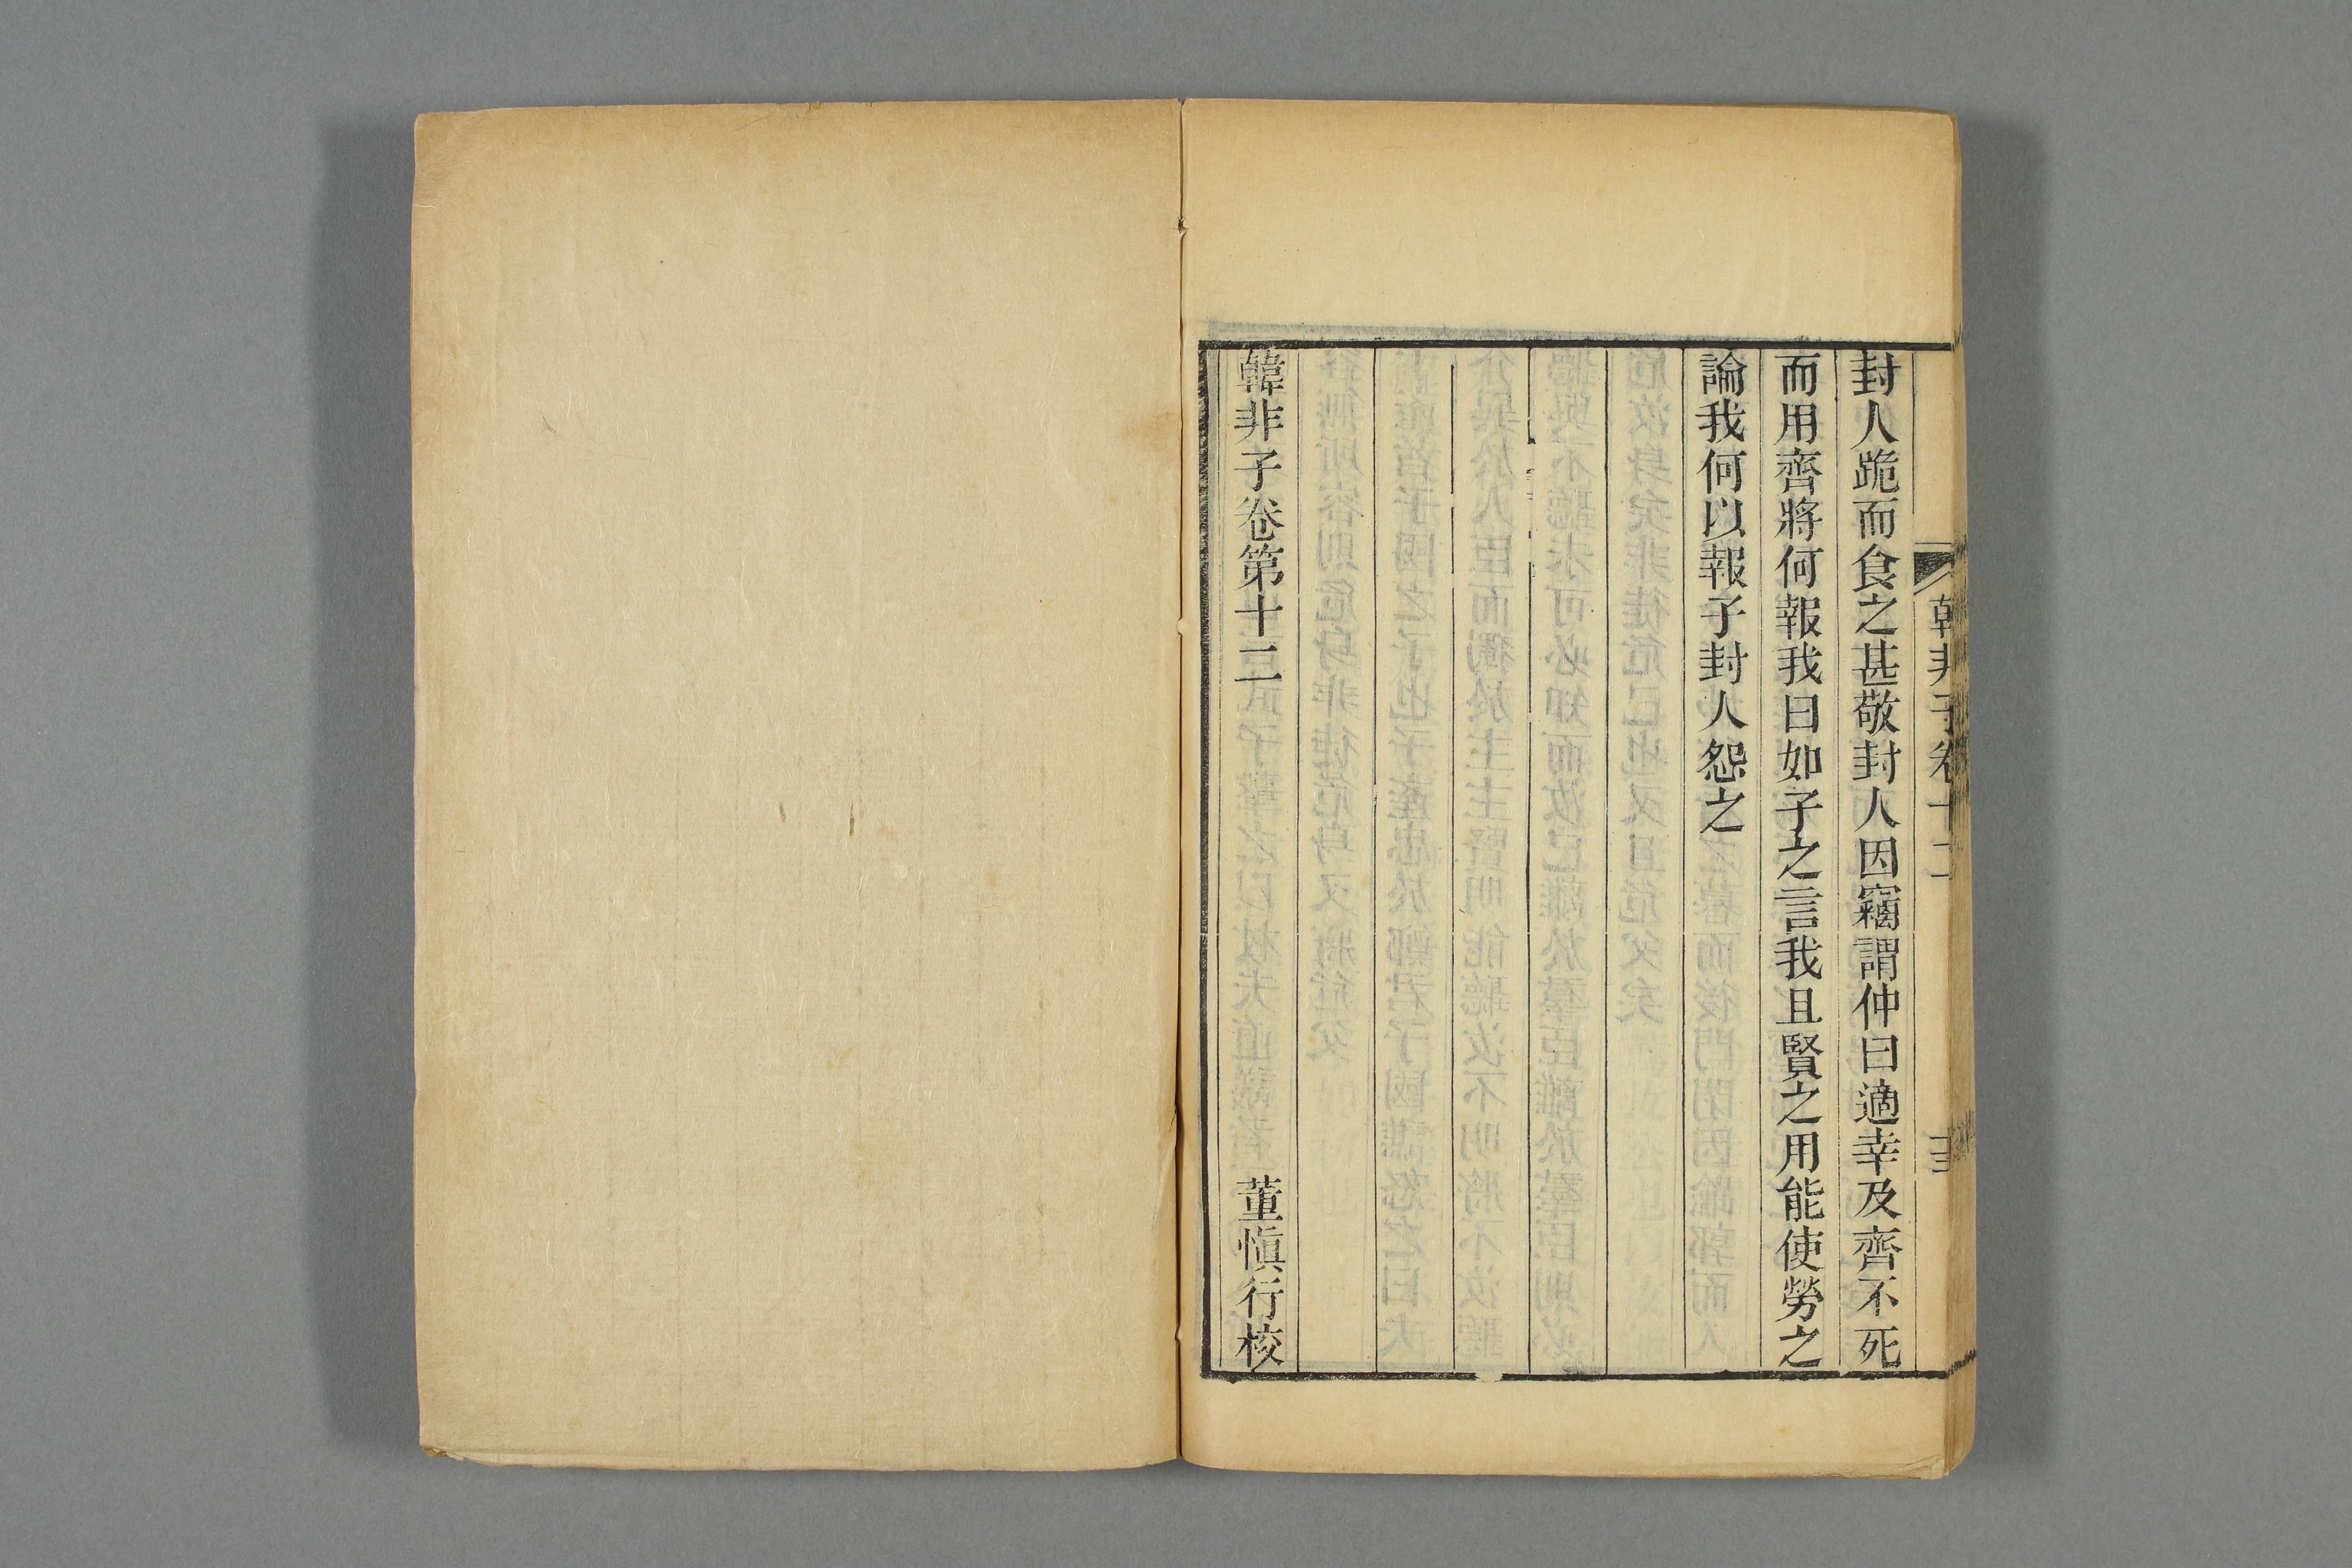 韓非子卷十二
十三
封人跪而食之甚敬封人因竊謂仲曰適幸及齊不死
而用齊將何報我曰如子之言我且賢之用能使勞之
論我何以報子封人怨之
韓非子卷第十二 董慎行校